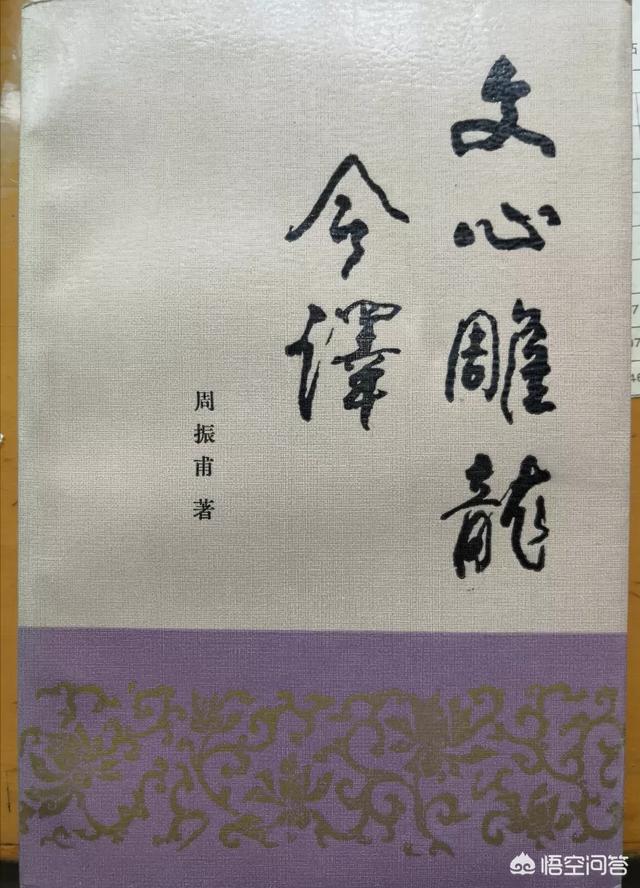 文心雕龍
今譯
周振甫著
悟空问答